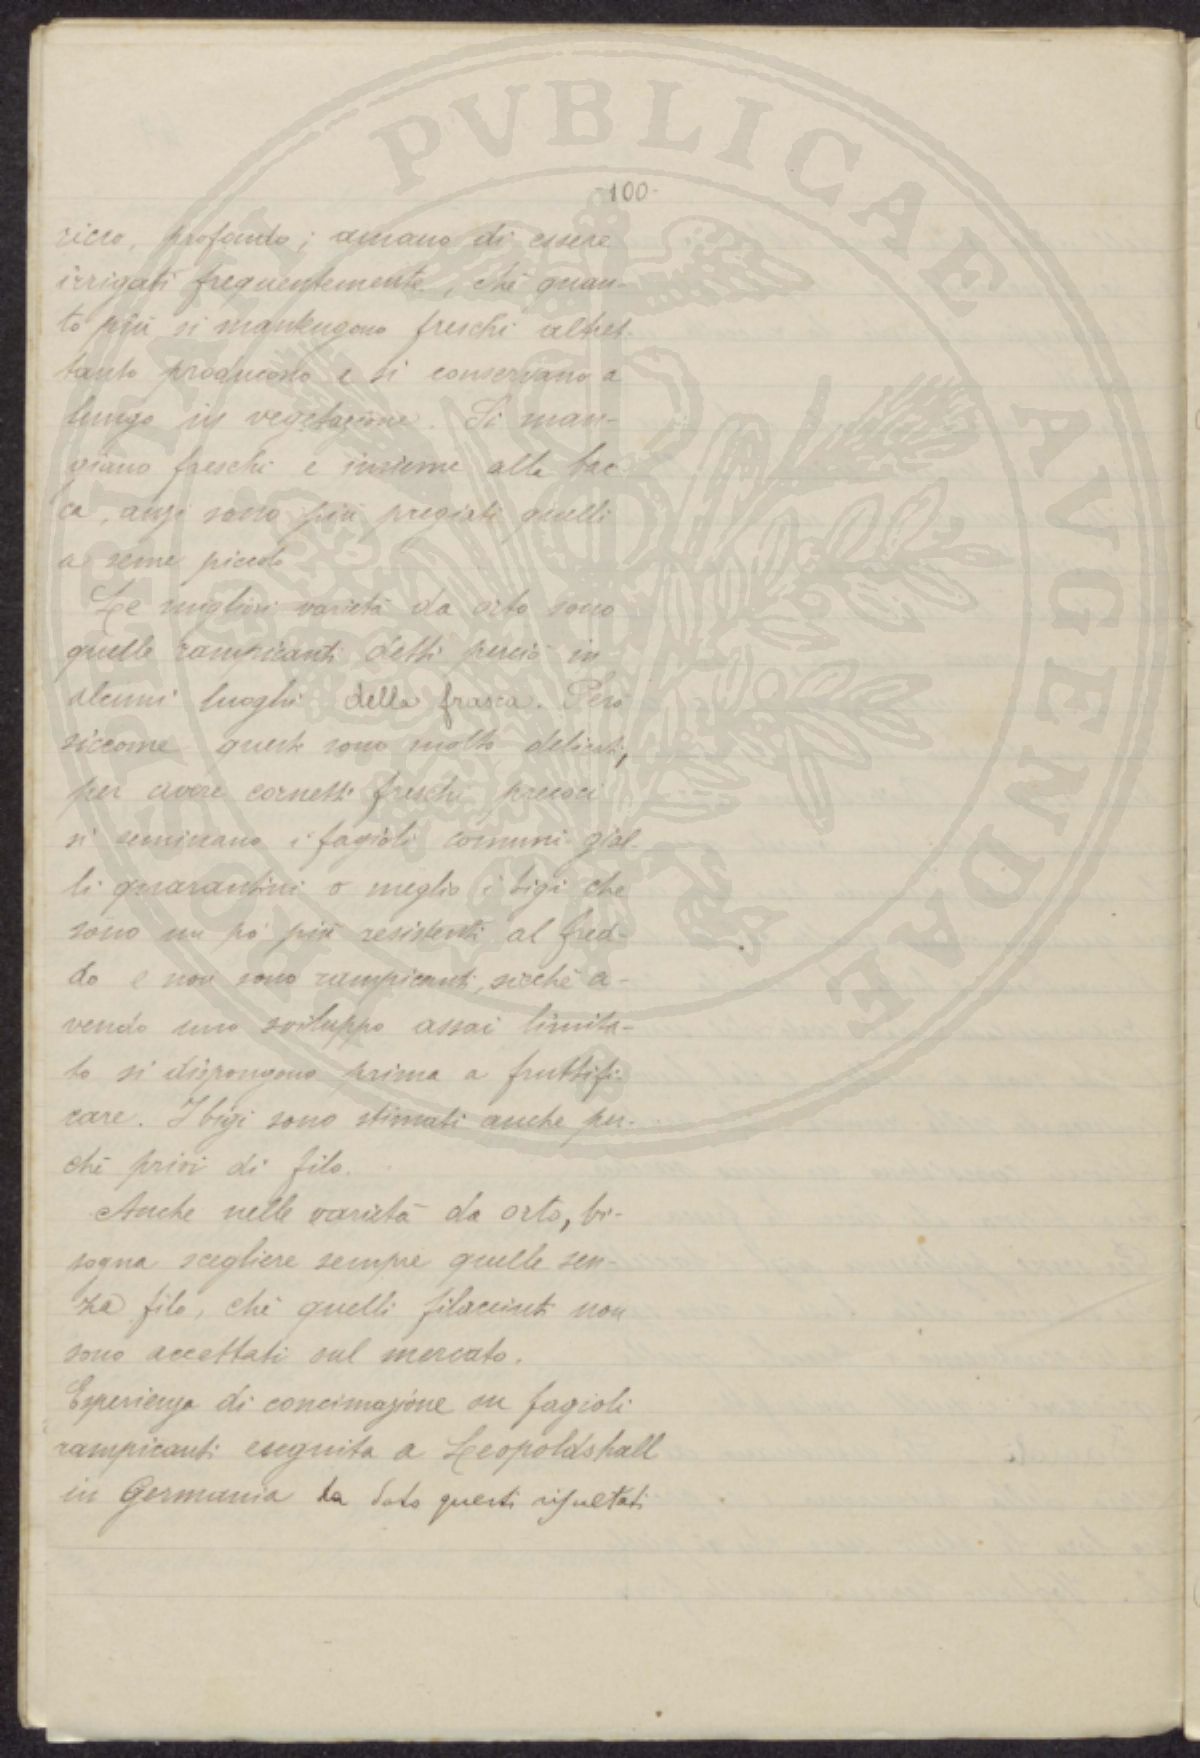 100-
ricco, profondo; amano di essere
irrigati frequentemente, chè quan-
to più si mantengono freschi altret-
tanto producono e si conservano a
lungo in vegetazione. Si man-
giano freschi e insieme alla bac
ca, anzi sono più pregiati quelli
a seme piccolo
Le migliori varietà da orto sono
quelle rampicanti detti perciò in
alcuni luoghi della frasca. Però
siccome questi sono molto delicati,
per avere cornetti freschi precoci
si seminano i fagioli comuni gial-
li quarantini o meglio i bigi che
sono un po' più resistenti al fred-
do e non sono rampicanti, sicchè a-
vendo uno sviluppo assai limita-
to si dispongono prima a fruttifi-
care. I bigi sono stimati anche per-
chè privi di filo.
Anche nelle varietà da orto, bi-
sogna scegliere sempre quelle sen-
za filo, chè quelli filaccinti non
sono accettati sul mercato.
Esperienza di concimazione su fagioli
rampicanti eseguita a Leopoldshall
in Germania ha dato questi risultati
PVBLICAE AVGENDAE